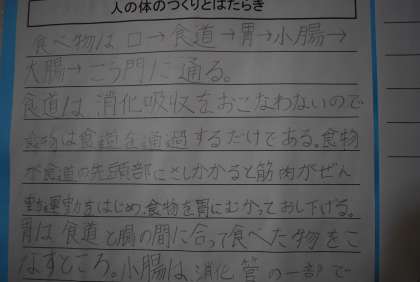 人の体のつくりとはたらき
食べ物は、口→食道→胃→小腸→
大腸→こう門に通る。
食道は、消化吸収をおこなわないので
食物は食道を通過するだけである。食物
が食道の先頭部にさしかかると筋肉がぜん
動運動をはじめ、食物を胃にむかっておし下げる。
胃は食道と腸の間に合って食べた物をこ
なすところ。小腸は、消化管の一部で